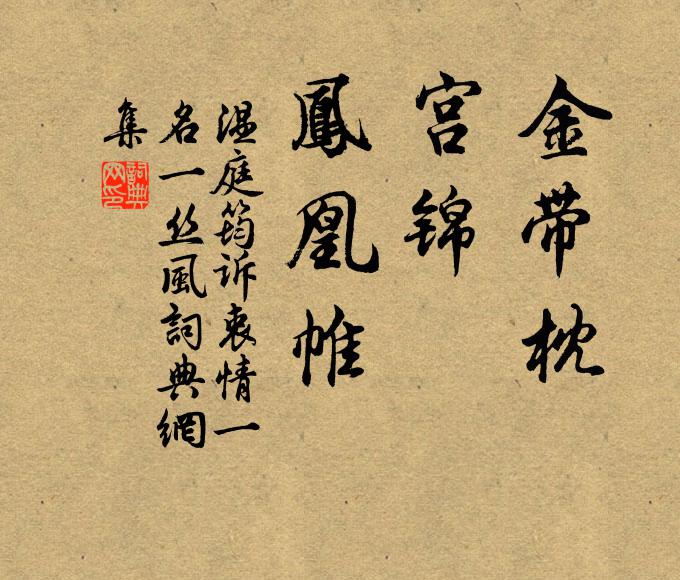 金带枕
宫锦
鳳凰帷
温庭筠诉衷情一
名一丝風詞典網
集
詞典网印